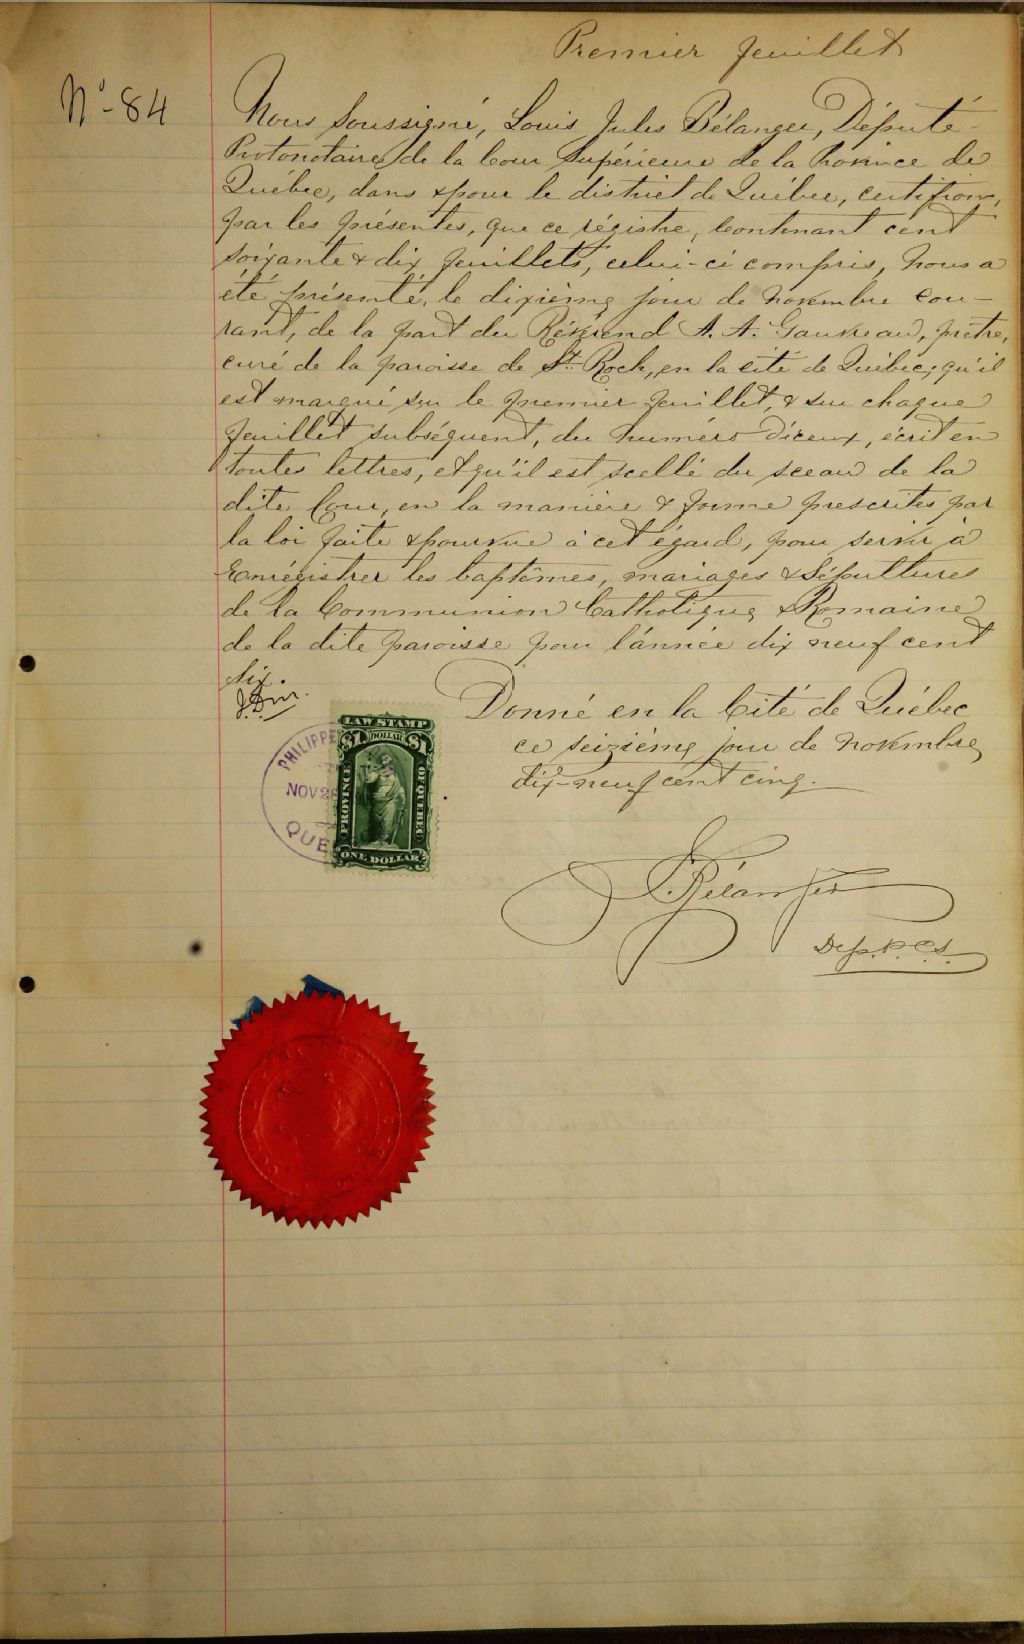 Premier feuillet
No-84
Nous soussigné, Louis Jules Bélanger, Député-
Protonotaire de la Cour Supérieure de la Province de
Québec, dans & pour le district de Québec, certifions,
par les présentes, que ce régistre, contenant cent
soixante & dix feuillets, celui-ci compris, nous a
été présenté, le dixième jour de novembre cou-
rant, de la part du Révérend A. A. Gauvreau, prêtre,
curé de la paroisse de St. Roch, en la cité de Québec; qu'il
est marqué sur le premier feuillet, & sur chaque
feuillet subséquent, du numéro d'iceux, écrit en
toutes lettres, et qu'il est scellé du sceau de la
dite Cour, en la manière & forme prescrites par
la loi faite & pourvue à cet égard, pour servir à
Enrégistrer les baptêmes, mariages & Sépultures
de la Communion Catholique & Romaine
de la dite paroisse pour l'année dix neuf cent
six.
Donné en la Cité de Québec
ce seizième jour de novembre
dix-neuf cent cinq.
LAW STAMP
$1 DOLLAR $1
PROVINCE OF QUEBEC
ONE DOLLAR
PHILIPPE
NOV 28
QUE
Bélanger
Dep. P. C. S.